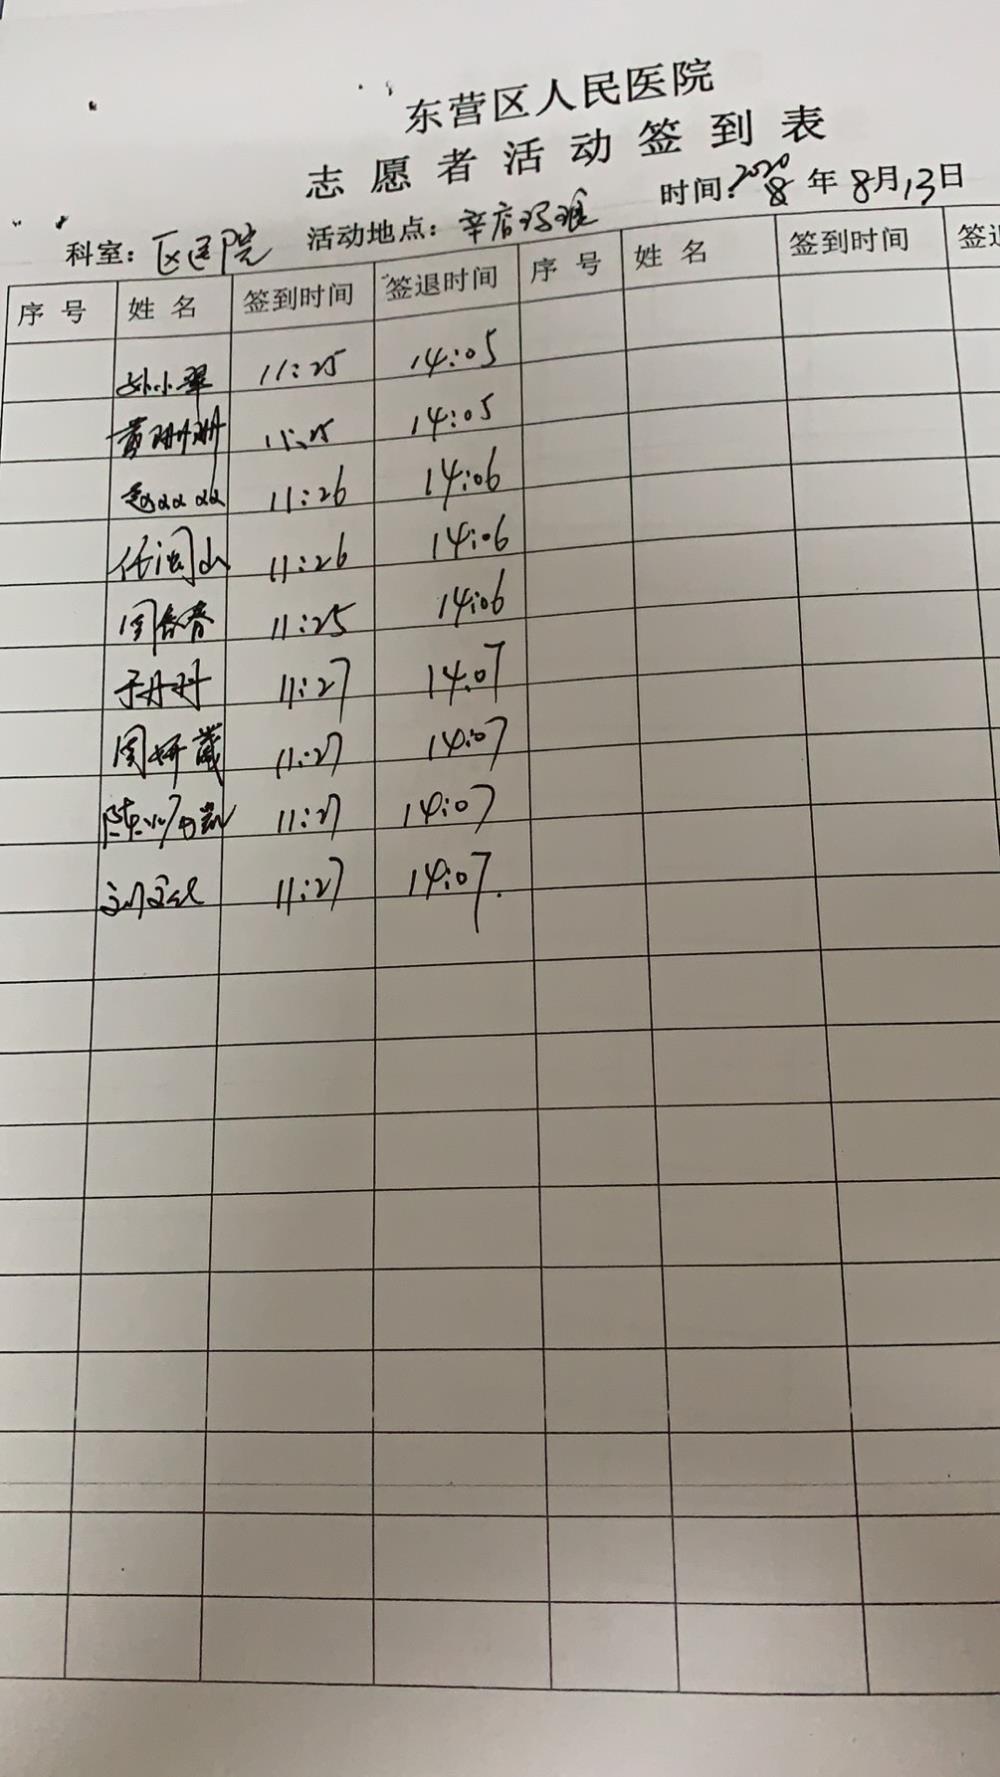 东营区人民医院
志愿者活动签到表
科室：区医院 活动地点：辛店 时间：2020年8月13日
序号 姓名 签到时间 签退时间 序号 姓名 签到时间 签退
孙小翠 11:25 14:05
黄珊珊 11:25 14:05
赵 11:26 14:06
任闯山 11:26 14:06
闫春春 11:25 14:06
于丹丹 11:27 14:07
周妍葳 11:27 14:07
陈 11:27 14:07
刘 11:27 14:07.